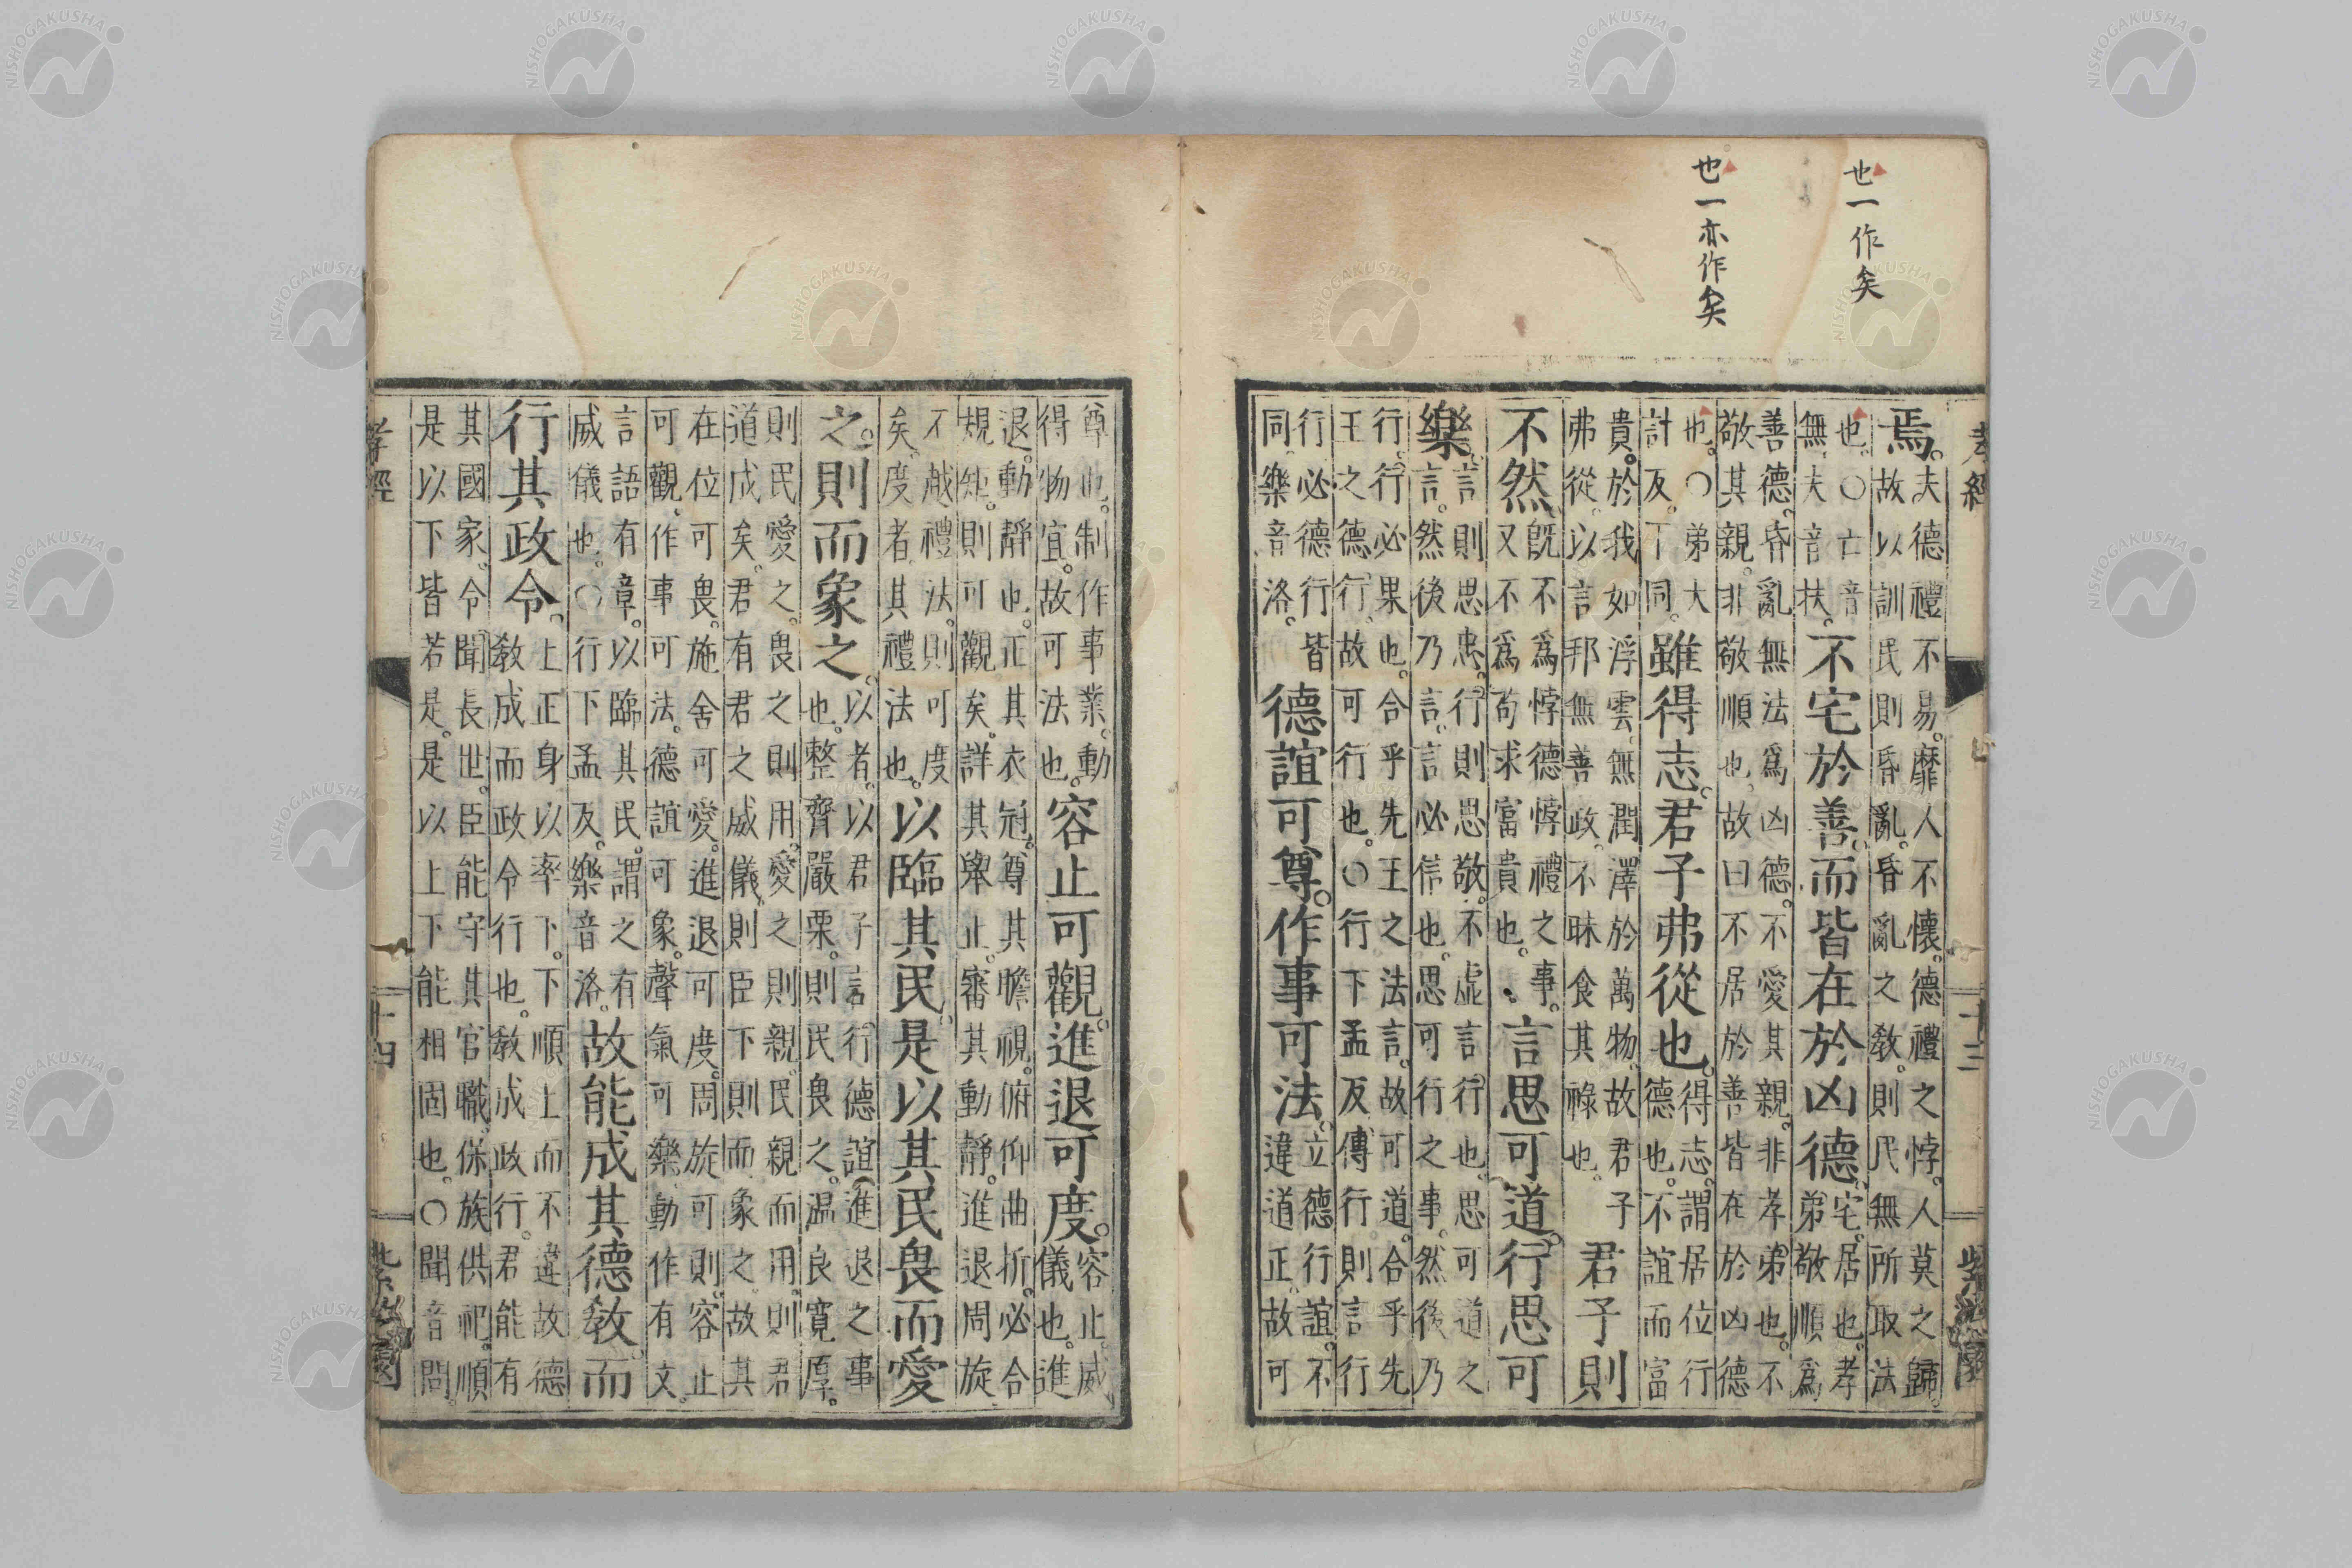 也一作矣
也一亦作矣
孝經
十三
焉。夫德禮不易。靡人不懷。德禮之悖。人莫之歸。
故以訓民則昏亂。昏亂之敎。則民無所取法
也。○亡音
無。夫音扶。
不宅於善。而皆在於凶德。宅。居也。孝
弟敬順爲
善德。昏亂無法爲凶德。不愛其親。非孝弟也。不
敬其親。非敬順也。故曰不居於善皆在於凶德
也。○弟大
計反。下同。
雖得志。君子弗從也。得志。謂居位行
德也。不誼而富
貴。於我如浮雲。無潤澤於萬物。故君子
弗從。以言邦無善政。不昧食其祿也。
君子則
不然。旣不爲悖德悖禮之事。
又不爲苟求富貴也。
言思可道。行思可
樂。言則思忠。行則思敬。不虛言行也。思可道之
言。然後乃言。言必信也。思可行之事。然後乃
行。行必果也。合乎先王之法言。故可道。合乎先
王之德行。故可行也。○行下孟反。傳行則言行
行必德行皆
同。樂音洛。
德誼可尊。作事可法。立德行誼。不
違道正。故可
尊也。制作事業。動
得物宜。故可法也。
容止可觀。進退可度。容止。威
儀也。進
退。動靜也。正其衣冠。尊其瞻視。俯仰曲折。必合
規矩。則可觀矣。詳其舉止。審其動靜。進退周旋
不越禮法。則可度
矣。度者。其禮法也。
以臨其民。是以其民畏而愛
之。則而象之。以者。以君子言行德誼進退之事
也。整齊嚴栗。則民畏之。温良寬厚。
則民愛之。畏之則用。愛之則親。民親而用。則君
道成矣。君有君之威儀。則臣下則而象之。故其
在位可畏。施舍可愛。進退可度。周旋可則。容止
可觀。作事可法。德誼可象。聲氣可樂。動作有文。
言語有章。以臨其民。謂之有
威儀也。○行下孟反。樂音洛。
故能成其德敎。而
行其政令。上正身以率下。下順上而不違故德
敎成而政令行也。敎成政行。君能有
其國家。令聞長世。臣能守其官職。保族供祀。順
是以下皆若是。是以上下能相固也。○聞音問。
孝經
十四
NISHOGAKUSHA